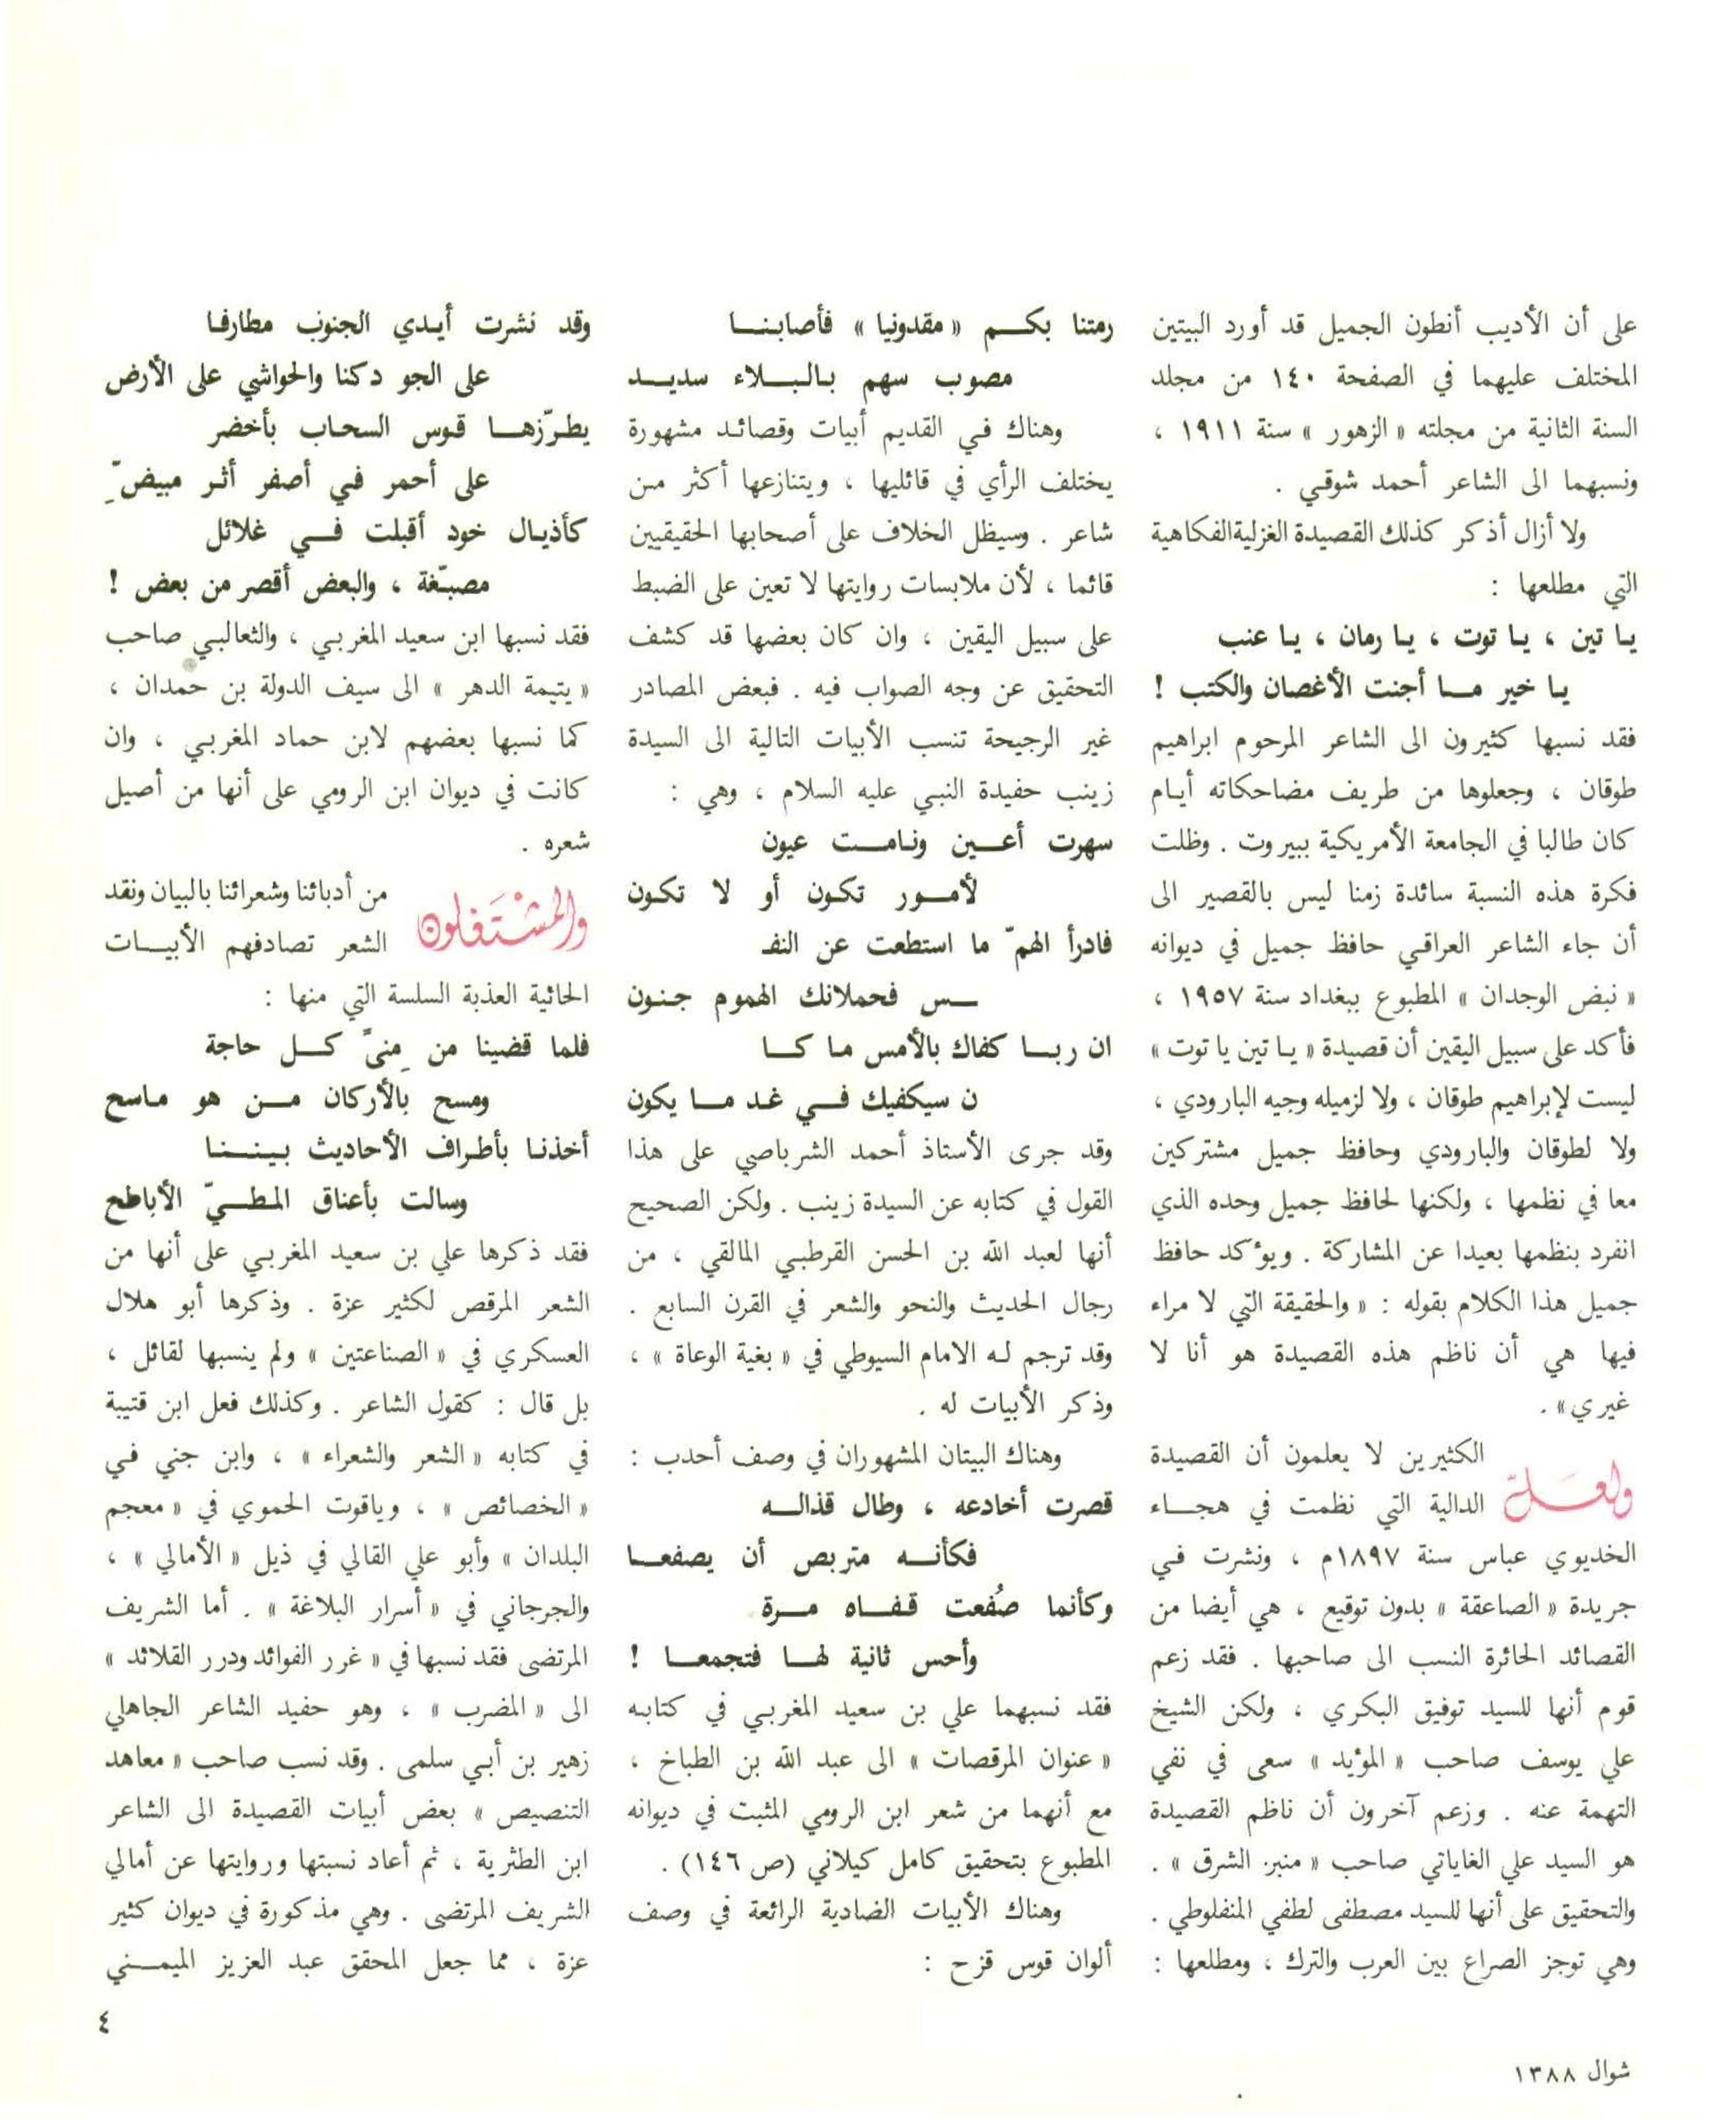 على أن الأديب أنطون الجميل قد أورد البيتين
المختلف عليهما في الصفحة ١٤٠ من مجلد
السنة الثانية من مجلته « الزهور » سنة ١٩١١ ،
ونسبهما الى الشاعر أحمد شوقي .
ولا أزال أذكر كذلك القصيدة الغزلية الفكاهية
التي مطلعها :
يا تين ، يا توت ، يا رمان ، يا عنب
يا خير مـا أجنت الأغصان والكتب !
فقد نسبها كثيرون الى الشاعر المرحوم ابراهيم
طوقان ، وجعلوها من طريف مضاحكاته أيام
كان طالبا في الجامعة الأمريكية ببيروت . وظلت
فكرة هذه النسبة سائدة زمنا ليس بالقصير الى
أن جاء الشاعر العراقي حافظ جميل في ديوانه
« نبض الوجدان » المطبوع ببغداد سنة ١٩٥٧ ،
فأكد على سبيل اليقين أن قصيدة « يا تين يا توت »
ليست لإبراهيم طوقان ، ولا لزميله وجيه البارودي ،
ولا لطوقان والبارودي وحافظ جميل مشتركين
معا في نظمها ، ولكنها لحافظ جميل وحده الذي
انفرد بنظمها بعيدا عن المشاركة . ويؤكد حافظ
جميل هذا الكلام بقوله : « والحقيقة التي لا مراء
فيها هي أن ناظم هذه القصيدة هو أنا لا
غيري» .
ولعلّ الكثيرين لا يعلمون أن القصيدة
الدالية التي نظمت في هجاء
الخديوي عباس سنة ١٨٩٧م ، ونشرت في
جريدة « الصاعقة » بدون توقيع ، هي أيضا من
القصائد الحائرة النسب الى صاحبها . فقد زعم
قوم أنها للسيد توفيق البكري ، ولكن الشيخ
علي يوسف صاحب « المؤيد » سعى في نفي
التهمة عنه . وزعم آخرون أن ناظم القصيدة
هو السيد علي الغاياتي صاحب « منبر الشرق » .
والتحقيق على أنها للسيد مصطفى لطفي المنفلوطي .
وهي توجز الصراع بين العرب والترك ، ومطلعها :
رمتنا بكـم « مقدونيا » فأصابنـا
مصوب سهم بالبـلاء سديـد
وهناك في القديم أبيات وقصائد مشهورة
يختلف الرأي في قائليها ، ويتنازعها أكثر من
شاعر . وسيظل الخلاف على أصحابها الحقيقيين
قائما ، لأن ملابسات روايتها لا تعين على الضبط
على سبيل اليقين ، وان كان بعضها قد كشف
التحقيق عن وجه الصواب فيه . فبعض المصادر
غير الرجيحة تنسب الأبيات التالية الى السيدة
زينب حفيدة النبي عليه السلام ، وهي :
سهرت أعـين ونامـت عيون
لأمـور تكون أو لا تكون
فادرأ الهمّ ما استطعت عن النفـ
ـس فحملانك الهموم جنون
ان ربـا كفاك بالأمس ما كـا
ن سيكفيك فـي غد مـا يكون
وقد جرى الأستاذ أحمد الشرباصي على هذا
القول في كتابه عن السيدة زينب . ولكن الصحيح
أنها لعبد الله بن الحسن القرطبي المالقي ، من
رجال الحديث والنحو والشعر في القرن السابع .
وقد ترجم له الامام السيوطي في « بغية الوعاة » ،
وذكر الأبيات له .
وهناك البيتان المشهوران في وصف أحدب :
قصرت أخادعه ، وطال قذالـه
فكأنـه متربص أن يصفعـا
وكأنما صُفعت قفـاه مـرة
وأحس ثانية لهـا فتجمعـا !
فقد نسبهما علي بن سعيد المغربي في كتابه
« عنوان المرقصات » الى عبد الله بن الطباخ ،
مع أنهما من شعر ابن الرومي المثبت في ديوانه
المطبوع بتحقيق كامل كيلاني (ص ١٤٦) .
وهناك الأبيات الضادية الرائعة في وصف
ألوان قوس قزح :
وقد نشرت أيدي الجنوب مطارفا
على الجو دكنا والحواشي على الأرض
يطرّزهـا قوس السحاب بأخضر
على أحمر في أصفر أثر مبيضّ
كأذيال خود أقبلت فـي غلائل
مصبّغة ، والبعض أقصر من بعض !
فقد نسبها ابن سعيد المغربي ، والثعالبي صاحب
« يتيمة الدهر » الى سيف الدولة بن حمدان ،
كما نسبها بعضهم لابن حماد المغربي ، وان
كانت في ديوان ابن الرومي على أنها من أصيل
شعره .
والمشْتَغلون من أدبائنا وشعرائنا بالبيان ونقد
الشعر تصادفهم الأبيـات
الحائية العذبة السلسة التي منها :
فلما قضينا من مِنىً كـل حاجة
ومسح بالأركان مـن هو ماسح
أخذنا بأطراف الأحاديث بيننـا
وسالت بأعناق المطـيّ الأباطح
فقد ذكرها علي بن سعيد المغربي على أنها من
الشعر المرقص لكثير عزة . وذكرها أبو هلال
العسكري في « الصناعتين » ولم ينسبها لقائل ،
بل قال : كقول الشاعر . وكذلك فعل ابن قتيبة
في كتابه « الشعر والشعراء » ، وابن جني في
« الخصائص » ، وياقوت الحموي في « معجم
البلدان » وأبو علي القالي في ذيل « الأمالي » ،
والجرجاني في « أسرار البلاغة » . أما الشريف
المرتضى فقد نسبها في « غرر الفوائد ودرر القلائد »
الى « المضرب » ، وهو حفيد الشاعر الجاهلي
زهير بن أبي سلمى . وقد نسب صاحب « معاهد
التنصيص » بعض أبيات القصيدة الى الشاعر
ابن الطثرية ، ثم أعاد نسبتها وروايتها عن أمالي
الشريف المرتضى . وهي مذكورة في ديوان كثير
عزة ، مما جعل المحقق عبد العزيز الميمـني
٤
شوال ١٣٨٨